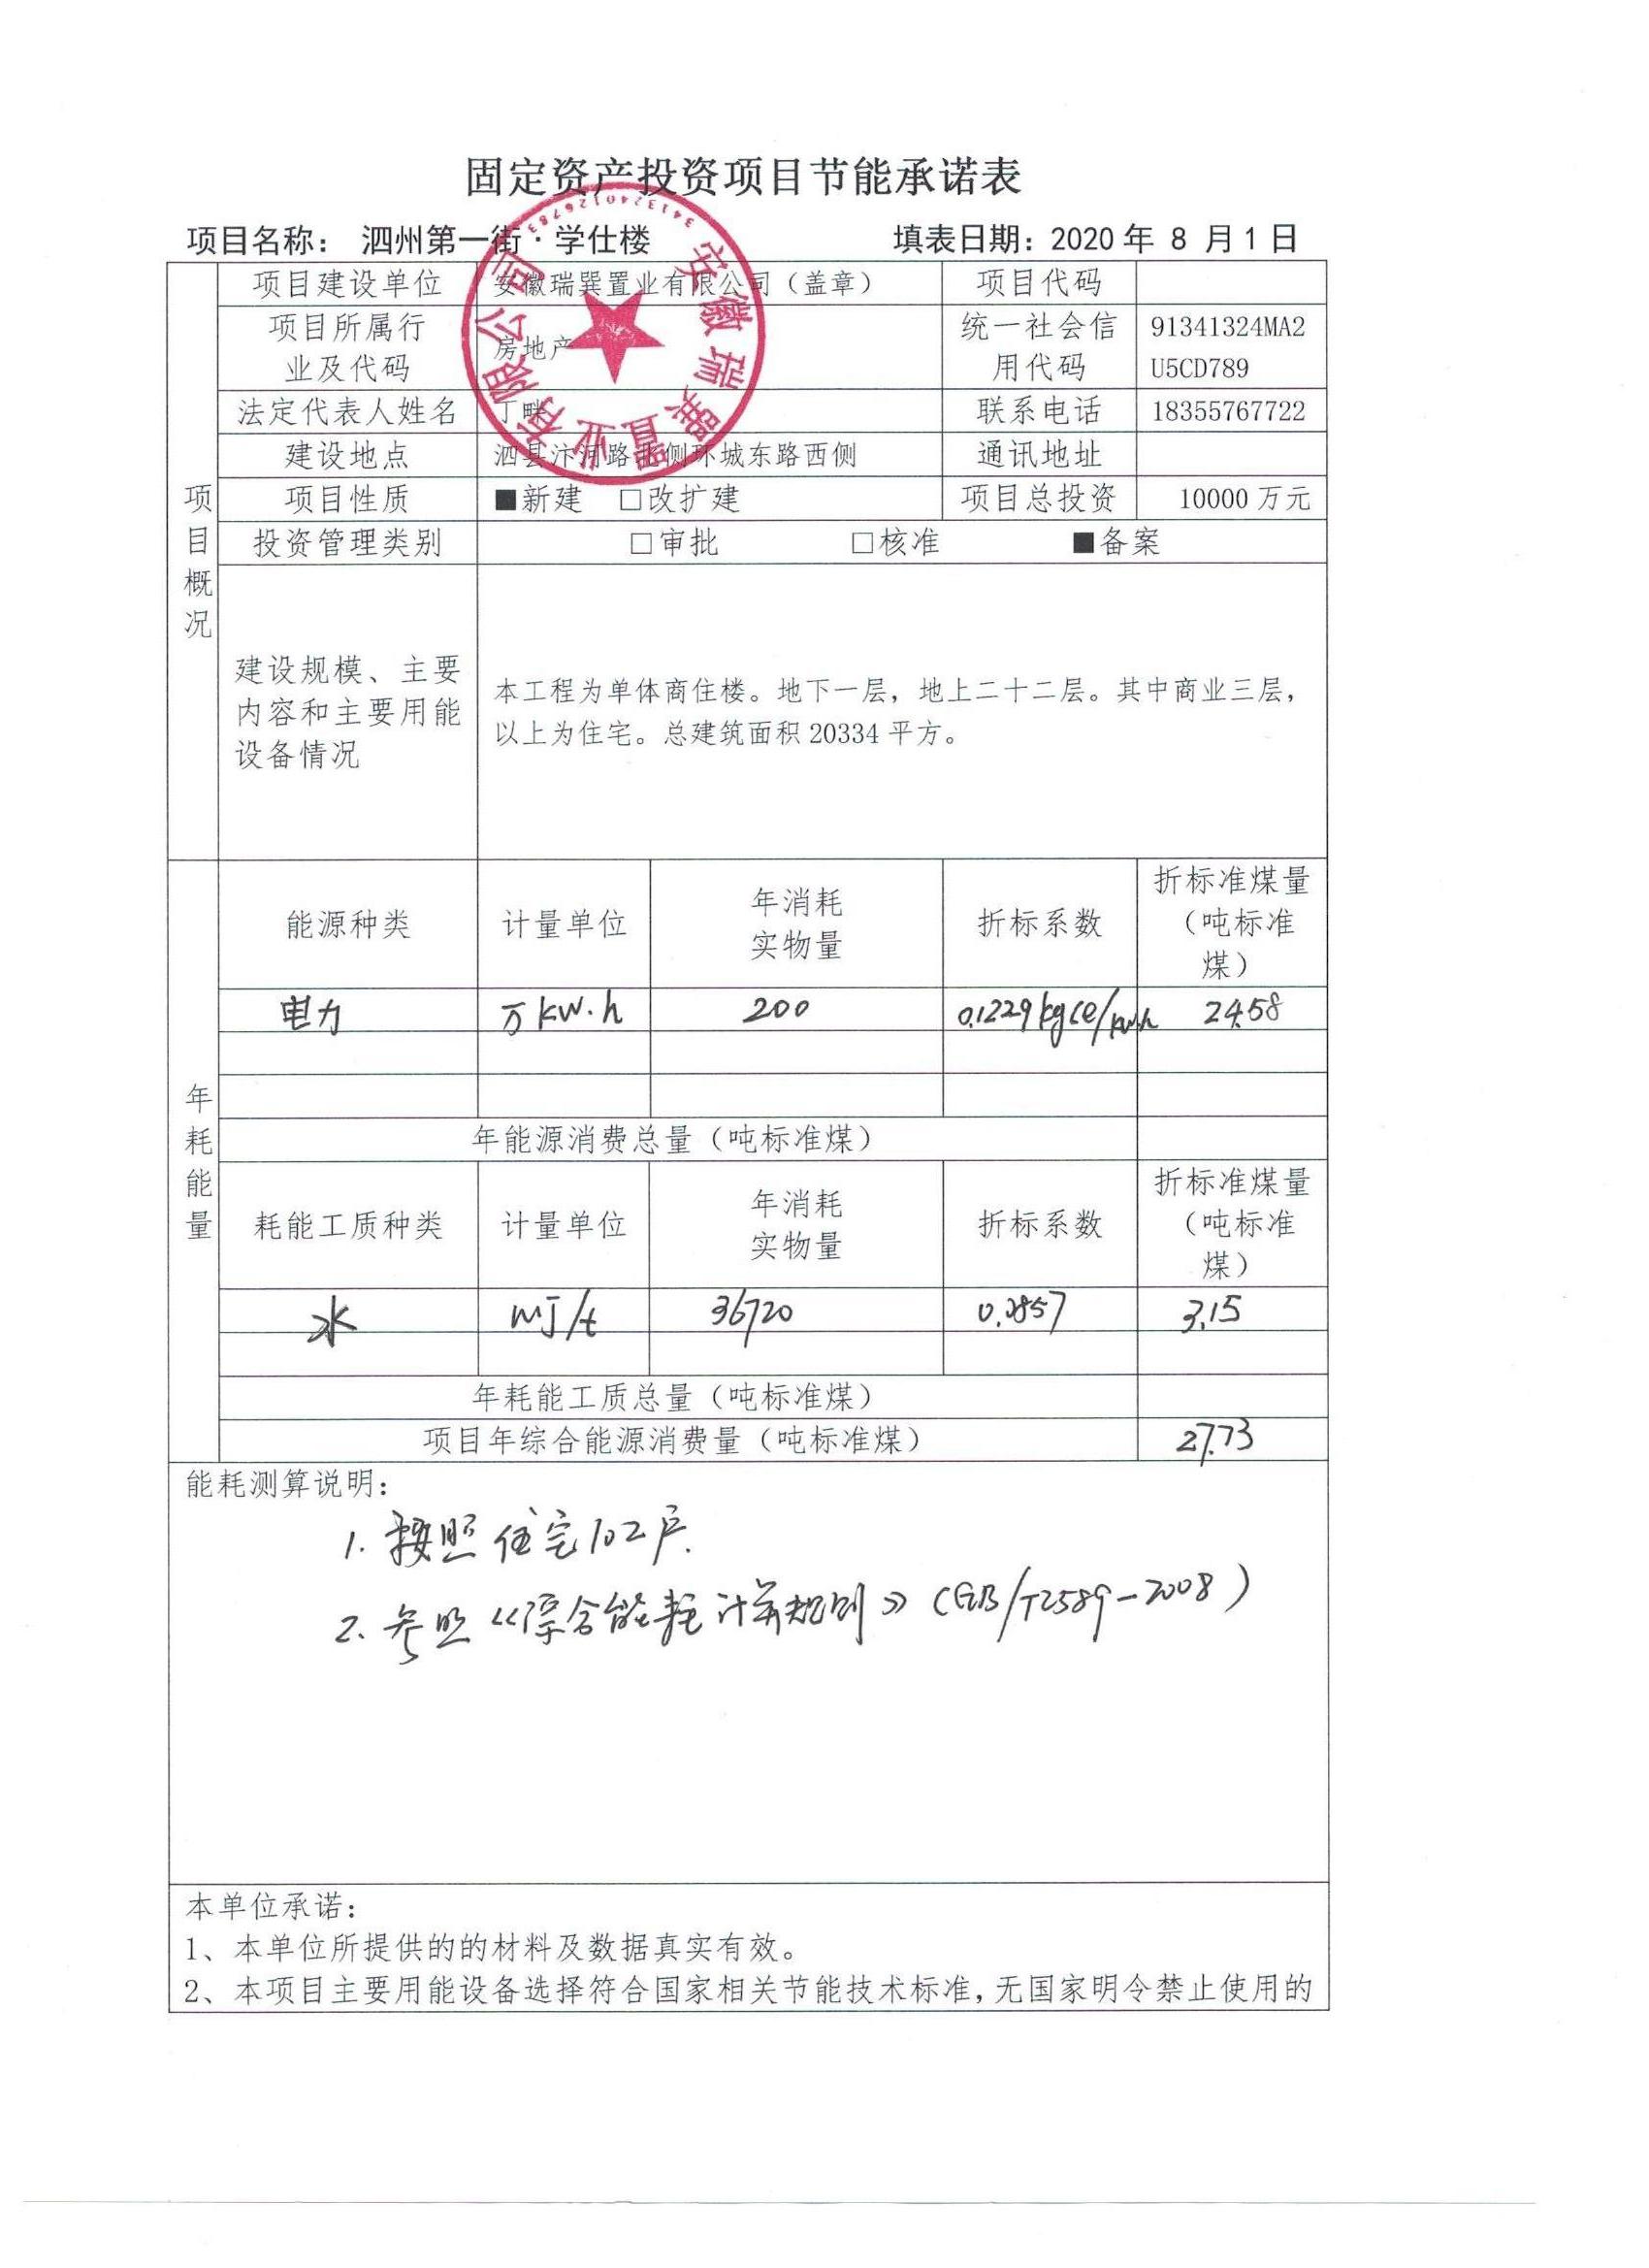 固定资产投资项目节能承诺表
项目名称： 泗州第一街·学仕楼 填表日期：2020年 8 月1日
项目概况
项目建设单位 安徽瑞巽置业有限公司（盖章） 项目代码
项目所属行业及代码 房地产 统一社会信用代码 91341324MA2U5CD789
法定代表人姓名 丁畔 联系电话 18355767722
建设地点 泗县汴河路北侧环城东路西侧 通讯地址
项目性质 ■新建 □改扩建 项目总投资 10000万元
投资管理类别 □审批 □核准 ■备案
建设规模、主要内容和主要用能设备情况
本工程为单体商住楼。地下一层，地上二十二层。其中商业三层，
以上为住宅。总建筑面积20334平方。
年耗能量
能源种类 计量单位 年消耗实物量 折标系数 折标准煤量（吨标准煤）
电力 万kw.h 200 0.1229kgce/kw.h 24.58
年能源消费总量（吨标准煤）
耗能工质种类 计量单位 年消耗实物量 折标系数 折标准煤量（吨标准煤）
水 mJ/t 36720 0.0857 3.15
年耗能工质总量（吨标准煤）
项目年综合能源消费量（吨标准煤） 27.73
能耗测算说明：
1. 按照住宅102户.
2. 参照《综合能耗计算规则》（GB/T2589-2008）
本单位承诺：
1、本单位所提供的的材料及数据真实有效。
2、本项目主要用能设备选择符合国家相关节能技术标准，无国家明令禁止使用的
安徽瑞巽置业有限公司
3413240126783